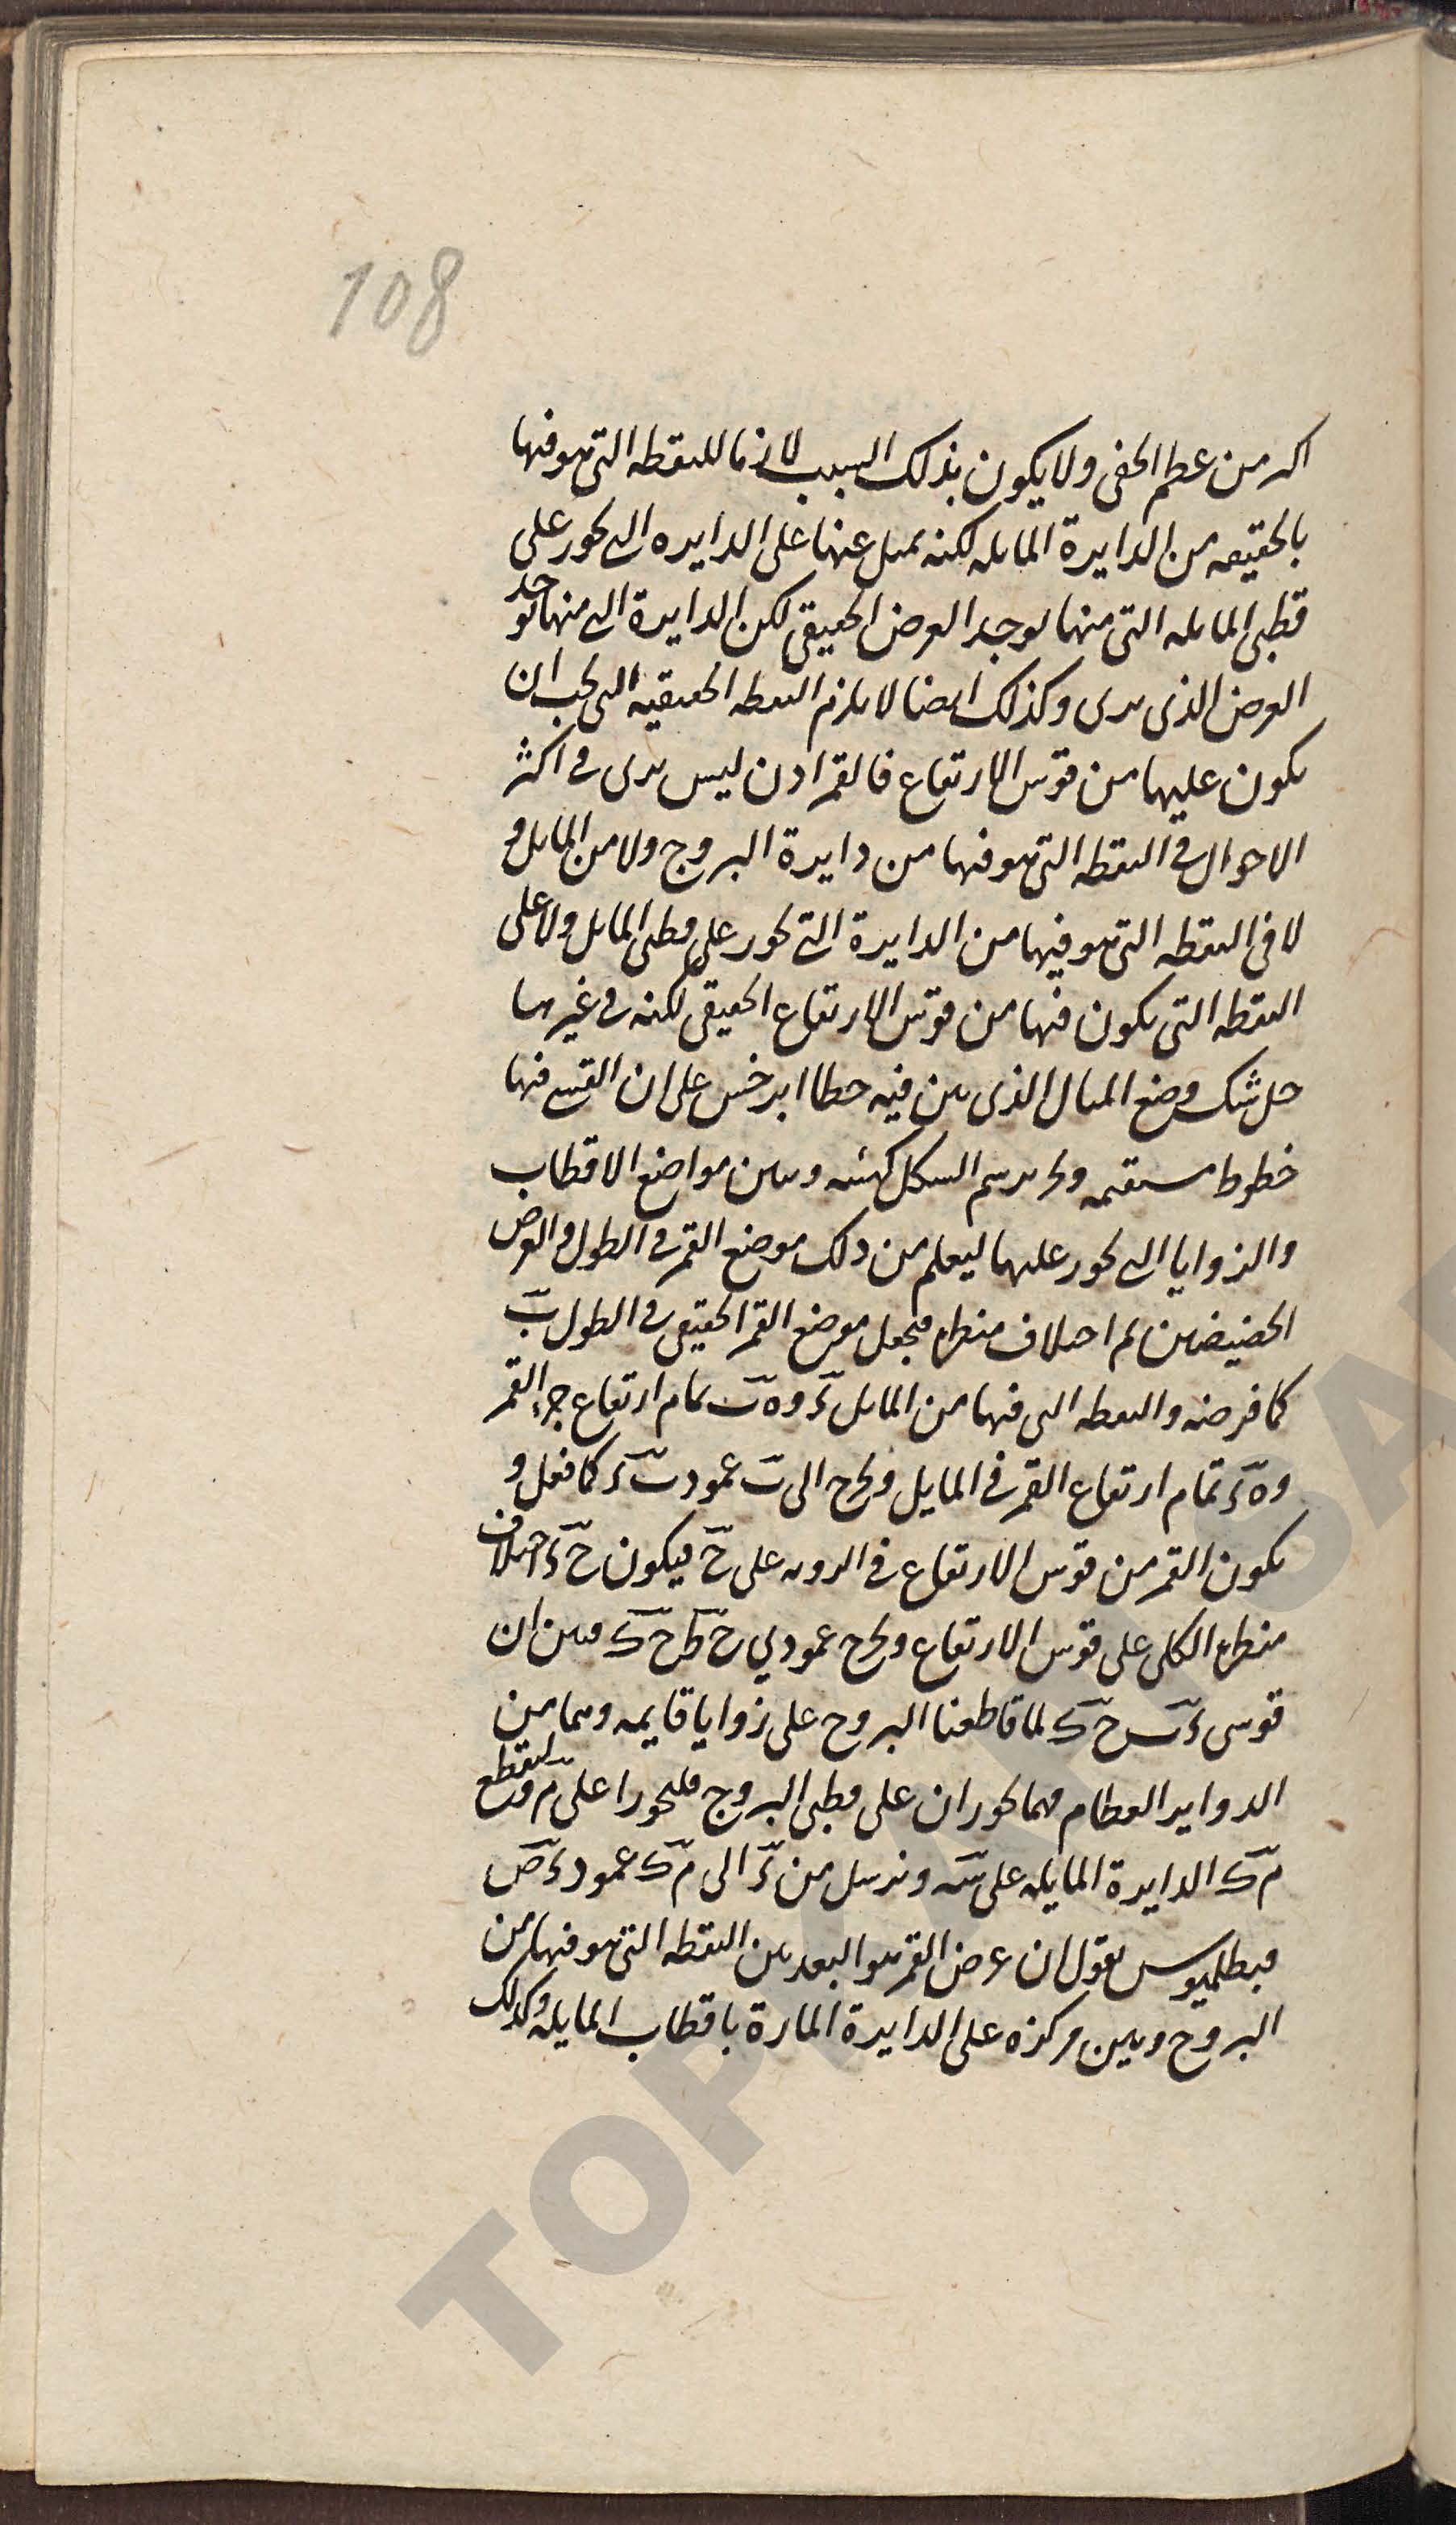 108
اكبر من عظم الخفى ولا يكون بذلك السبب لازما للنقطه التى هو فيها
بالحقيقه من الدايرة المايله لكنه يميل عنها على الدايره التى تجوز على
قطبى المايله التى منها يوجد العرض الحقيقى لكن الدايرة التى منها يوجد
العرض الذى يرى وكذلك ايضا لا يلزم النقطه الحقيقيه التى يجب ان
يكون عليها من قوس الارتفاع فالقمر اذن ليس يرى فى اكثر
الاحوال فى النقطه التى هو فيها من دايرة البروج ولا من المايل و
لا فى النقطه التى هو فيها من الدايرة التى تجوز على قطبى المايل ولا على
النقطه التى يكون فيها من قوس الارتفاع الحقيقى لكنه فى غيرها
حل شك وضع المثال الذى بين فيه خطا ابرخس على ان القسى فيها
خطوط مستقيمه ونحن نرسم الشكل كهيئته ونبين مواضع الاقطاب
والزوايا التى تجوز عليها ليعلم من ذلك موضع القمر فى الطول والعرض
الحضيضين ثم اختلاف منظره فنجعل موضع القمر الحقيقى فى الطول ب
كما فرضه والنقطه التى فيها من المايل ء و ه ب تمام ارتفاع جزء القمر
و ه ء تمام ارتفاع القمر فى المايل ونخرج الى ب عمود ب ء كما فعل و
يكون القمر من قوس الارتفاع فى الرويه على ح فيكون ح ء اختلاف
منظره الكلى على قوس الارتفاع ونخرج عمودي ح ط ح ك فبين ان
قوسى ء ب ح ك لما قاطعنا البروج على زوايا قايمه وهما من
الدواير العظام فهما تجوزان على قطبى البروج فليجوزا على م وتقطع
م ك الدايرة المايله على س ونرسل من ء الى م ك عمود ء ص
فبطلميوس يقول ان عرض القمر هو البعد بين النقطه التى هو فيها من
البروج وبين مركزه على الدايرة المارة باقطاب المايله وكذلك
TOPKAPI SA